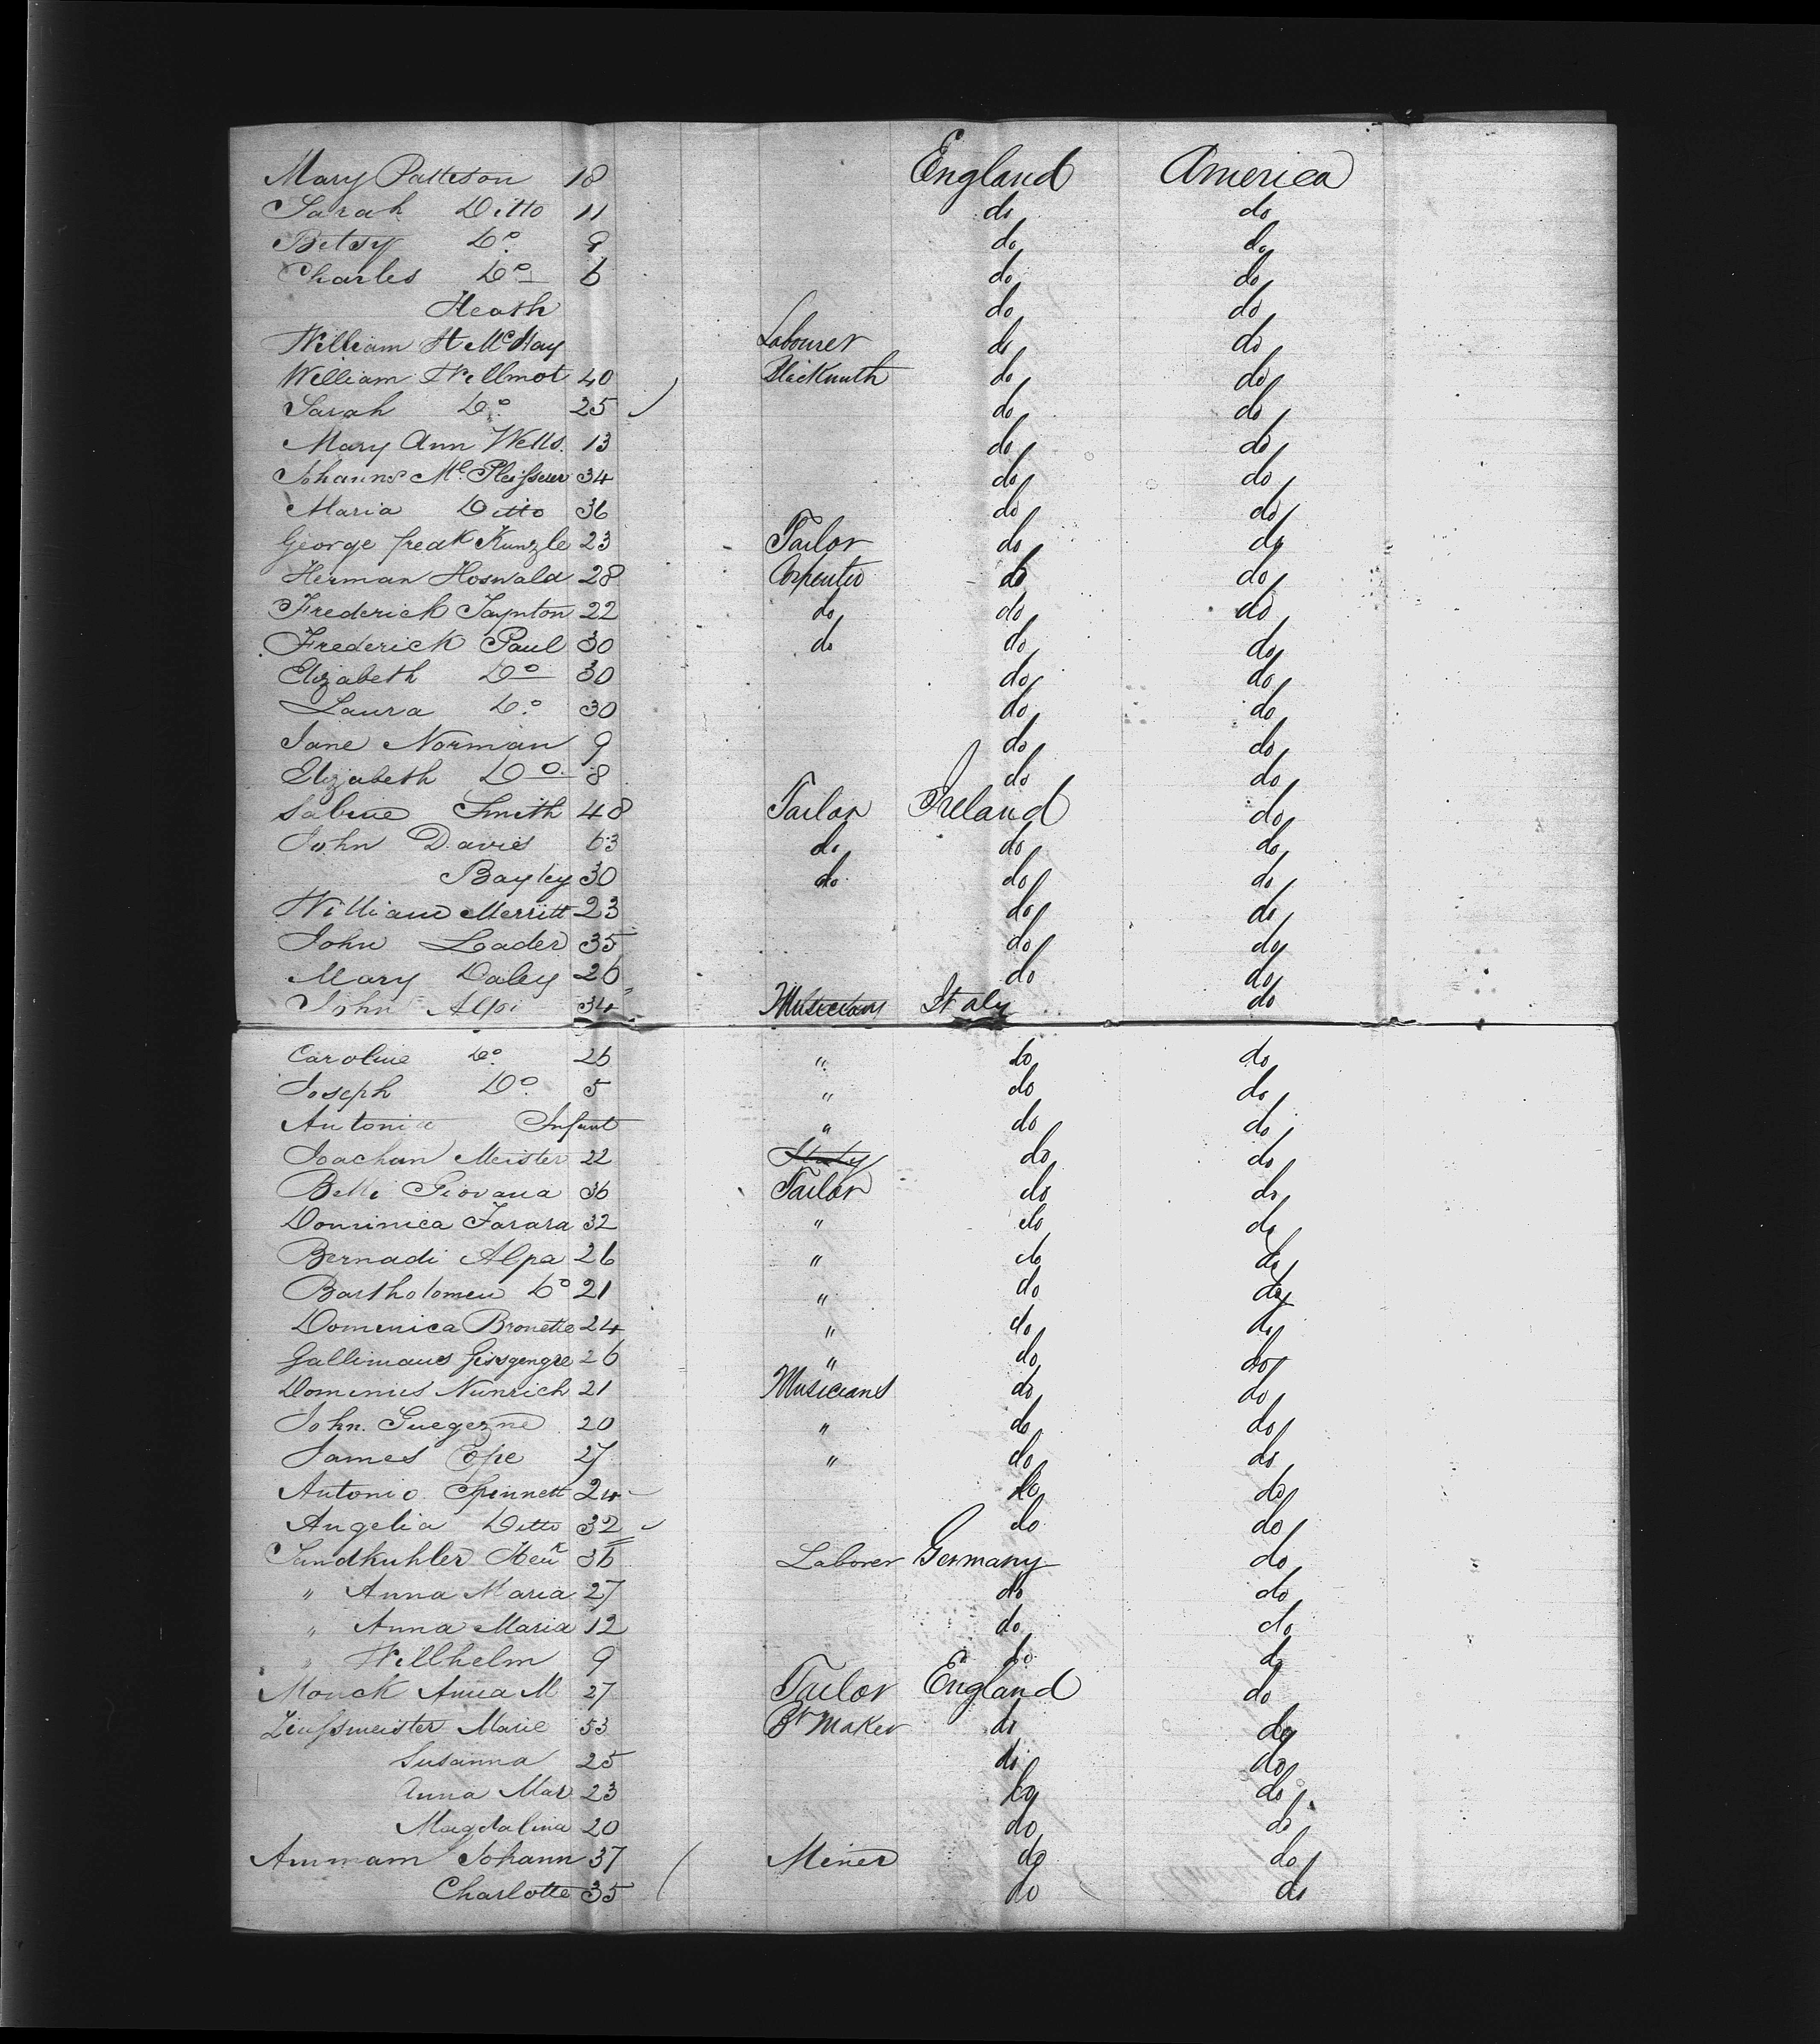 Mary Patteson 18 England America
Sarah Ditto 11 do do
Betsy Do. 9 do do
Charles Do 6 do do
Heath do do
William H McHay Labourer do do
William Willmot 40 do do
Sarah Do. 25 do do
Mary Ann Wells. 13 do do
34 do do
Maria Ditto 36 do do
George Kunzle 23 Tailor do do
Herman Hoswald 28 do do
Frederick Taynton 22 do do do
Frederick Paul 30 do do do
Elizabeth Do 30 do do
Laura Do. 30 do do
Jane Norman 9 do do
Elizabeth Do. 8 do do
Sabine Smith 48 Tailor Ireland do
John Davies 63 do do do
Bayley 30 do do do
William Merritt 23 do do
John Loader 35 do do
Mary Daley 26 do do
John Alpi 34 Musicians Italy do
Caroline Do. 26 " do do
Joseph Do. 5 " do do
Antonia Infant " do do
Joachim Meister 22 Italy do do
Betti Giovana 36 Tailor do do
Dominica Farara 32 " do do
Bernadi Alpa 26 " do do
Bartholomew Do 21 " do do
Domenica Bronette 24 " do do
26 " do do
Dominus Nunrich 21 Musicians do do
John 20 " do do
James Cope 27 " do do
Antonio Spinnett 24 do do
Angelia Ditto 32 do do
Sandkuhler Henr 36 Laborer Germany do
" Anna Maria 27 do do
" Anna Maria 12 do do
" Willhelm 9 do do
Monck Anna M 27 Tailor England do
Marie 53 Maker do do
Susanna 25 do do
Anna Mar 23 do do
Magdalina 20 do do
Ammam Johann 37 Miner do do
Charlotte 35 do do